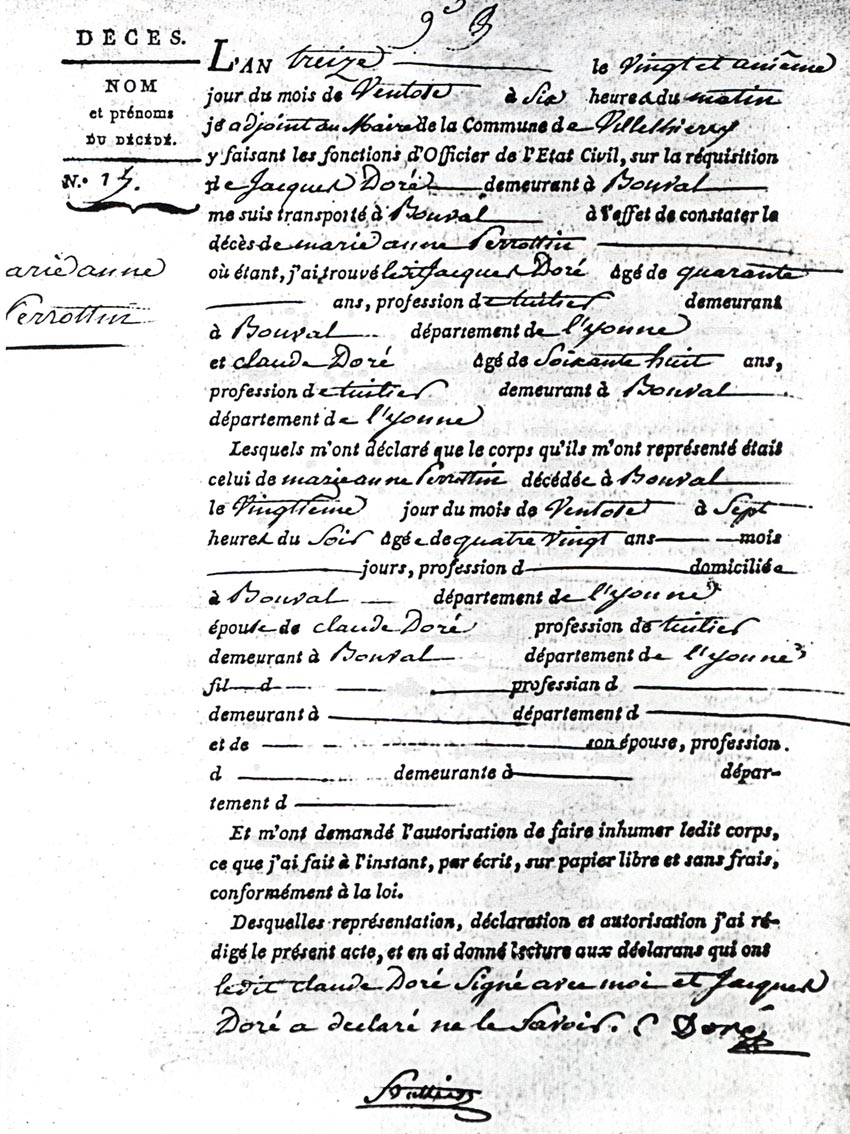 DECES.
NOM
et prénoms
DU DÉCÉDÉ.
N.º 15.
marie anne
Perrottin
L'AN treize le Vingt et unième
jour du mois de Ventose à Six heures du matin
je adjoint au Maire de la Commune de Villethierry
y faisant les fonctions d'Officier de l'Etat Civil, sur la réquisition
de Jacques Doré demeurant à Bouval
me suis transporté à Bouval à l'effet de constater le
décès de marie anne Perrottin
où étant, j'ai trouvé ledit Jacques Doré âgé de quarante
ans, profession de tuilier demeurant
à Bouval département de l'yonne
et claude Doré âgé de Soixante huit ans,
profession de tuilier demeurant à Bouval
département de l'yonne
Lesquels m'ont déclaré que le corps qu'ils m'ont représenté était
celui de marie anne Perrottin décédée à Bouval
le Vingtieme jour du mois de Ventose à Sept
heures du Soir âgée de quatre vingt ans mois
jours, profession d domiciliée
à Bouval département de l'yonne
épouse de claude Doré profession de tuilier
demeurant à Bouval département de l'yonne
fil d profession d
demeurant à département d
et de son épouse, profession.
d demeurante à dépar-
tement d
Et m'ont demandé l'autorisation de faire inhumer ledit corps,
ce que j'ai fait à l'instant, par écrit, sur papier libre et sans frais,
conformément à la loi.
Desquelles représentation, déclaration et autorisation j'ai ré-
digé le présent acte, et en ai donné lecture aux déclarans qui ont
ledit claude Doré Signé avec moi et Jacques
Doré a declaré ne le Savoir. C Doré